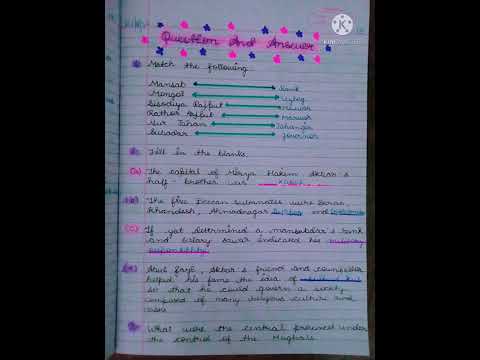 Question And Answer
Match the following.
Mansab Rank
Mongol Uzbeg
Sisodiya Rajput Mewar
Rathor Rajput Marwar
Nur Jahan Jahangir
Subadar Governor
Fill in the blanks.
(a) The capital of Mirza Hakim Akbar's
half-brother was Kabul
The five Deccan sultanates were Berar,
Khandesh, Ahmadnagar and
(c) If zat determined a mansabdar's rank
and salary sawar indicated his military
responsibility.
Abul Fazl, Akbar's friend and counsellor
helped him frame the idea of sulh-i kul
so that he could govern a society
composed of many religious culture and
What were the central provinces under
the control of the Mughals